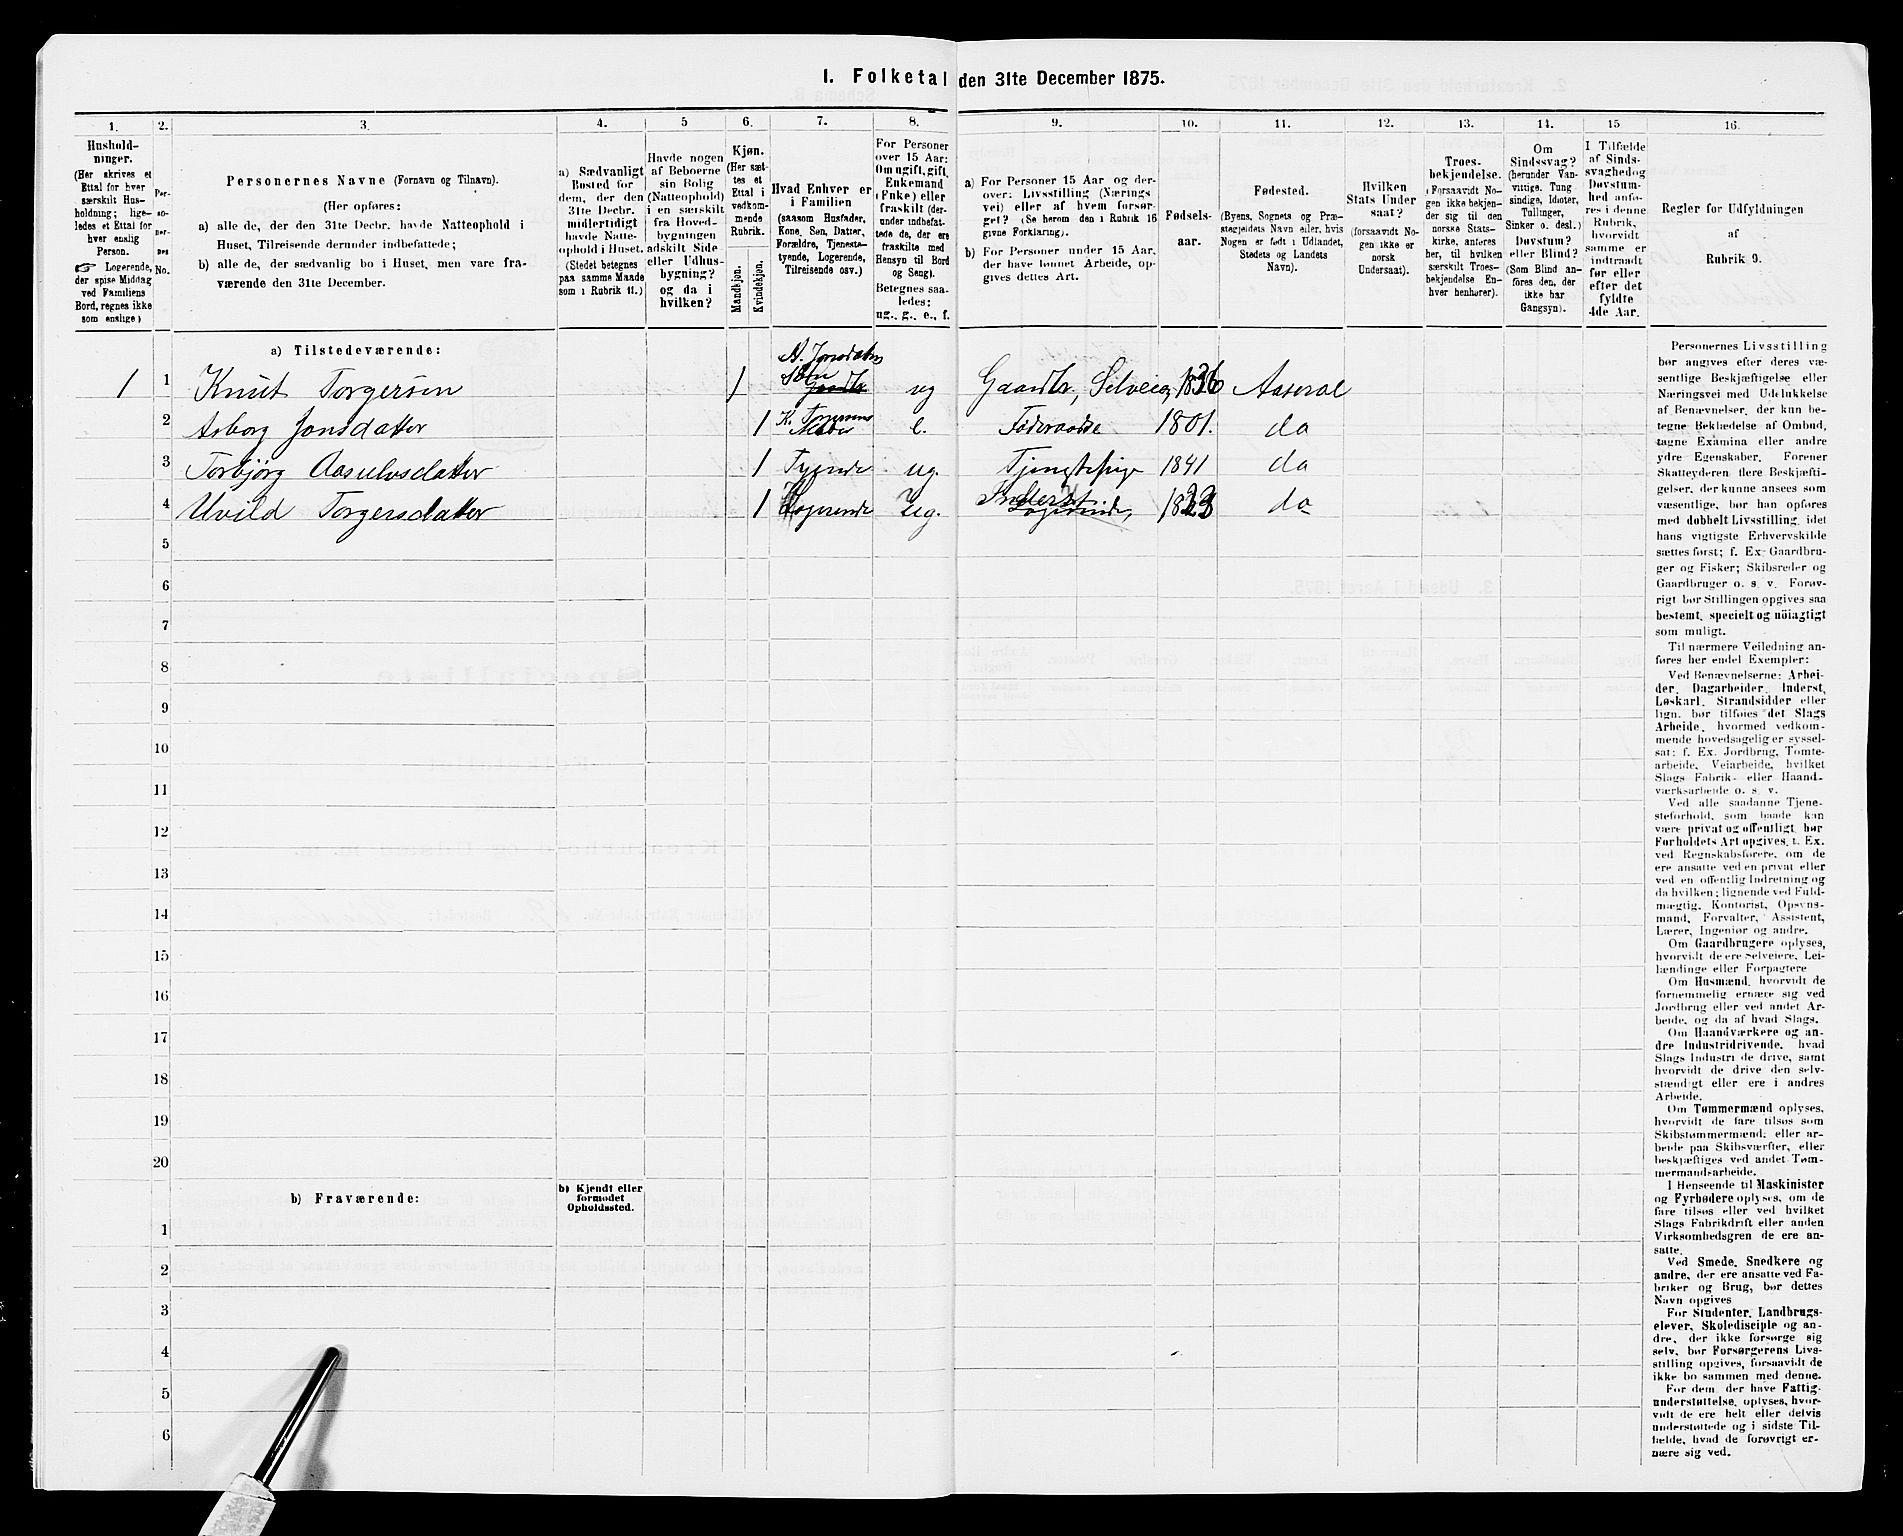 1. Folketal den 31te December 1875.
1. 2. 3. 4. 5 6. 7. 8. 9. 10. 11. 12. 13. 14. 15 16.
Hushold-
ninger.
(Her skrives et
Ettal for hver
særskilt Hus-
holdning; lige-
ledes et Ettal for
hver enslig
Person.
☞ Logerende,
der spise Middag
ved Familiens
Bord, regnes ikke
som enslige)
Per-
so-
ner-
nes
No.
Personernes Navne (Fornavn og Tilnavn).
(Her opføres:
a) alle de, der den 31te Decbr. havde Natteophold i
Huset, Tilreisende derunder indbefattede;
b) alle de, der sædvanlig bo i Huset, men vare fra-
værende den 31te December.
a) Sædvanligt
Bosted for
dem, der den
31te Decbr.
midlertidigt
havde Natte-
ophold i Huset.
(Stedet betegnes
paa samme Maade
som i Rubrik 11.)
Havde nogen
af Beboerne
sin Bolig
(Natteophold)
i en særskilt
fra Hoved-
bygningen
adskilt Side-
eller Udhus-
bygning?
og da i
hvilken?
Kjøn.
(Her sæt-
tes et
Ettal i
vedkom-
mende
Rubrik.
Mandkjøn.
Kvindekjøn.
Hvad Enhver er
i Familien
(saasom Husfader,
Kone, Søn, Datter,
Forældre, Tjeneste-
tyende, Logerende,
Tilreisende osv.)
For Personer
over 15 Aar:
Om ugift, gift,
Enkemand
(Enke) eller
fraskilt (der-
under indbefat-
tede de, der ere
fraskilte med
Hensyn til Bord
og Seng).
Betegnes saa-
ledes:
ug., g., e., f.
a) For Personer 15 Aar og der-
over: Livsstilling (Nærings
vei) eller af hvem forsør-
get? (Se herom den i Rubrik 16
givne Forklaring).
b) For Personer under 15 Aar,
der have lønnet Arbeide, op-
gives dettes Art.
Fødsels-
aar.
Fødested.
(Byens, Sognets og Præ-
stegjeldets Navn eller, hvis
Nogen er født i Udlandet,
Stedets og Landets
Navn).
Hvilken
Stats Under
saat?
(forsaavidt No-
gen ikke er
norsk
Undersaat).
Troes-
bekjendelse.
(Forsaavidt No-
gen ikke bekjen-
der sig til den
norske Stats-
kirke, anføres
her, til hvilken
særskilt Troes-
bekjendelse En-
hver henhører).
Om
Sindssvag?
(herunder Van-
vittige, Tung
sindige, Idioter,
Tullinger,
Sinker o. desl.)
Døvstum?
eller Blind?
(Som Blind an-
føres den, der
ikke har
Gangsyn).
I Tilfælde
af Sinds-
svaghedog
Døvstum-
hed anfø-
res i denne
Rubrik,
hvorvidt
samme er
indtraadt
før eller
efter det
fyldte
4de Aar.
Regler for Udfyldningen
af
Rubrik 9.
a) Tilstedeværende:
1 1 Knut Torgersen 1 A. Jonsdatters Søn ug Gaardbr, Selveier, 1836 Aaseral
2 Asborg Jonsdatter 1 K. Torgersens Moder e. Føderaadse 1801. do
3 Torbjørg Aasulvsdatter 1 Tyende ug. Tjenstepige 1841 do
4 Uvild Torgersdatter 1 Logerende Ug. Inderst do
5
6
7
8
9
10
11
12
13
14
15
16
17
18
19
20
b) Fraværende:
b) Kjendt eller
formodet
Opholdssted.
1
2
3
4
5
6
Personernes Livsstilling
bør angives efter deres væ-
sentlige Beskjæftigelse eller
Næringsvei med Udelukkelse
af Benævnelser, der kun be-
tegne Beklædelse af Ombud,
tagne Examina eller andre
ydre Egenskaber. Forener
Skatteyderen flere Beskjæfti-
gelser, der kunne ansees som
væsentlige, bør han opføres
med dobbelt Livsstilling, idet
hans vigtigste Erhvervskilde
sættes først; f. Ex. Gaardbru-
ger og Fisker; Skibsreder og
Gaardbruger o. s. v. Forøv-
rigt bør Stillingen opgives saa
bestemt, specielt og nöiagtigt
som muligt.
Til nærmere Veiledning an-
føres her endel Exempler:
Ved Benævnelserne: Arbei-
der, Dagarbeider, Inderst,
Løskarl, Strandsidder eller
lign. bør tilføies det Slags
Arbeide, hvormed vedkom-
mende hovedsagelig er syssel-
sat: f. Ex. Jordbrug, Tomte-
arbeide, Veiarbeide, hvilket
Slags Fabrik- eller Haand-
værksarbeide o. s. v.
Ved alle saadanne Tjene-
steforhold, som baade kan
være privat og offentligt, bør
Forholdets Art opgives, t. Ex.
ved Regnskabsførere, om de
ere ansatte ved en privat eller
ved en offentlig Indretning og
da hvilken; lignende ved Fuld-
mægtig, Kontorist, Opsyns-
mand, Forvalter, Assistent,
Lærer, Ingeniør og andre.
Om Gaardbrugere oplyses,
hvorvidt de ere Selveiere, Lei-
lændinge eller Forpagtere
Om Husmænd, hvorvidt de
fornemmelig ernære sig ved
Jordbrug eller ved andet Ar-
beide, og da af hvad Slags.
Om Haandværkere og an-
dre Industridrivende, hvad
Slags Industri de drive, samt
hvorvidt de drive den selv-
stændigt eller ere i andres
Arbeide.
Om Tømmermænd oplyses,
hvorvidt de fare tilsøs som
Skibstømmermænd; eller ar-
beide paa Skibsværfter, eller
beskjæftiges ved andet Tøm-
mermandsarbeide.
I Henseende til Maskinister
og Fyrbødere oplyses, om de
fare tilsøs eller ved hvilket
Slags Fabrikdrift eller anden
Virksomhedsgren de ere an-
satte.
Ved Smede, Snedkere og
andre, der ere ansatte ved Fa-
briker og Brug, bør dettes
Navn opgives
For Studenter, Landbrugs-
elever, Skoledisciple og an-
dre, der ikke forsørge sig
selv, bør Forsørgerens Livs-
stilling opgives, forsaavidt de
ikke bo sammen med denne.
For dem, der have Fattig-
understøttelse, oplyses, hvor-
vidt de ere helt eller delvis
understøttede og i sidste Til-
fælde, hvad de forøvrigt er-
nære sig ved.